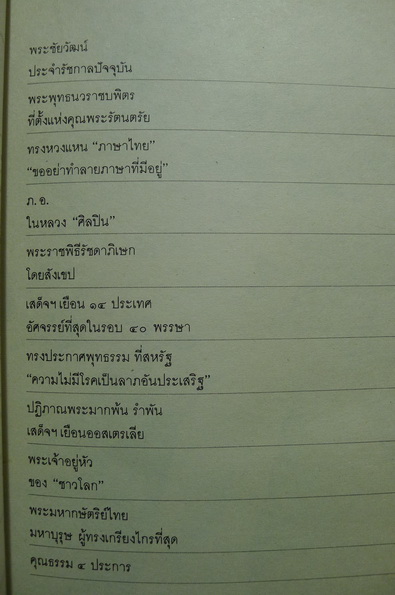 พระชัยวัฒน์
ประจำรัชกาลปัจจุบัน
พระพุทธนวราชบพิตร
ที่ตั้งแห่งคุณพระรัตนตรัย
ทรงหวงแหน “ภาษาไทย”
“ขออย่าทำลายภาษาที่มีอยู่”
ภ. อ.
ในหลวง “ศิลปิน”
พระราชพิธีรัชดาภิเษก
โดยสังเขป
เสด็จฯ เยือน ๑๔ ประเทศ
อัศจรรย์ที่สุดในรอบ ๔๐ พรรษา
ทรงประกาศพุทธธรรม ที่สหรัฐ
“ความไม่มีโรคเป็นลาภอันประเสริฐ”
ปฏิภาณพระมากพ้น รำพัน
เสด็จฯ เยือนออสเตรเลีย
พระเจ้าอยู่หัว
ของ “ชาวโลก”
พระมหากษัตริย์ไทย
มหาบุรุษ ผู้ทรงเกรียงไกรที่สุด
คุณธรรม ๔ ประการ